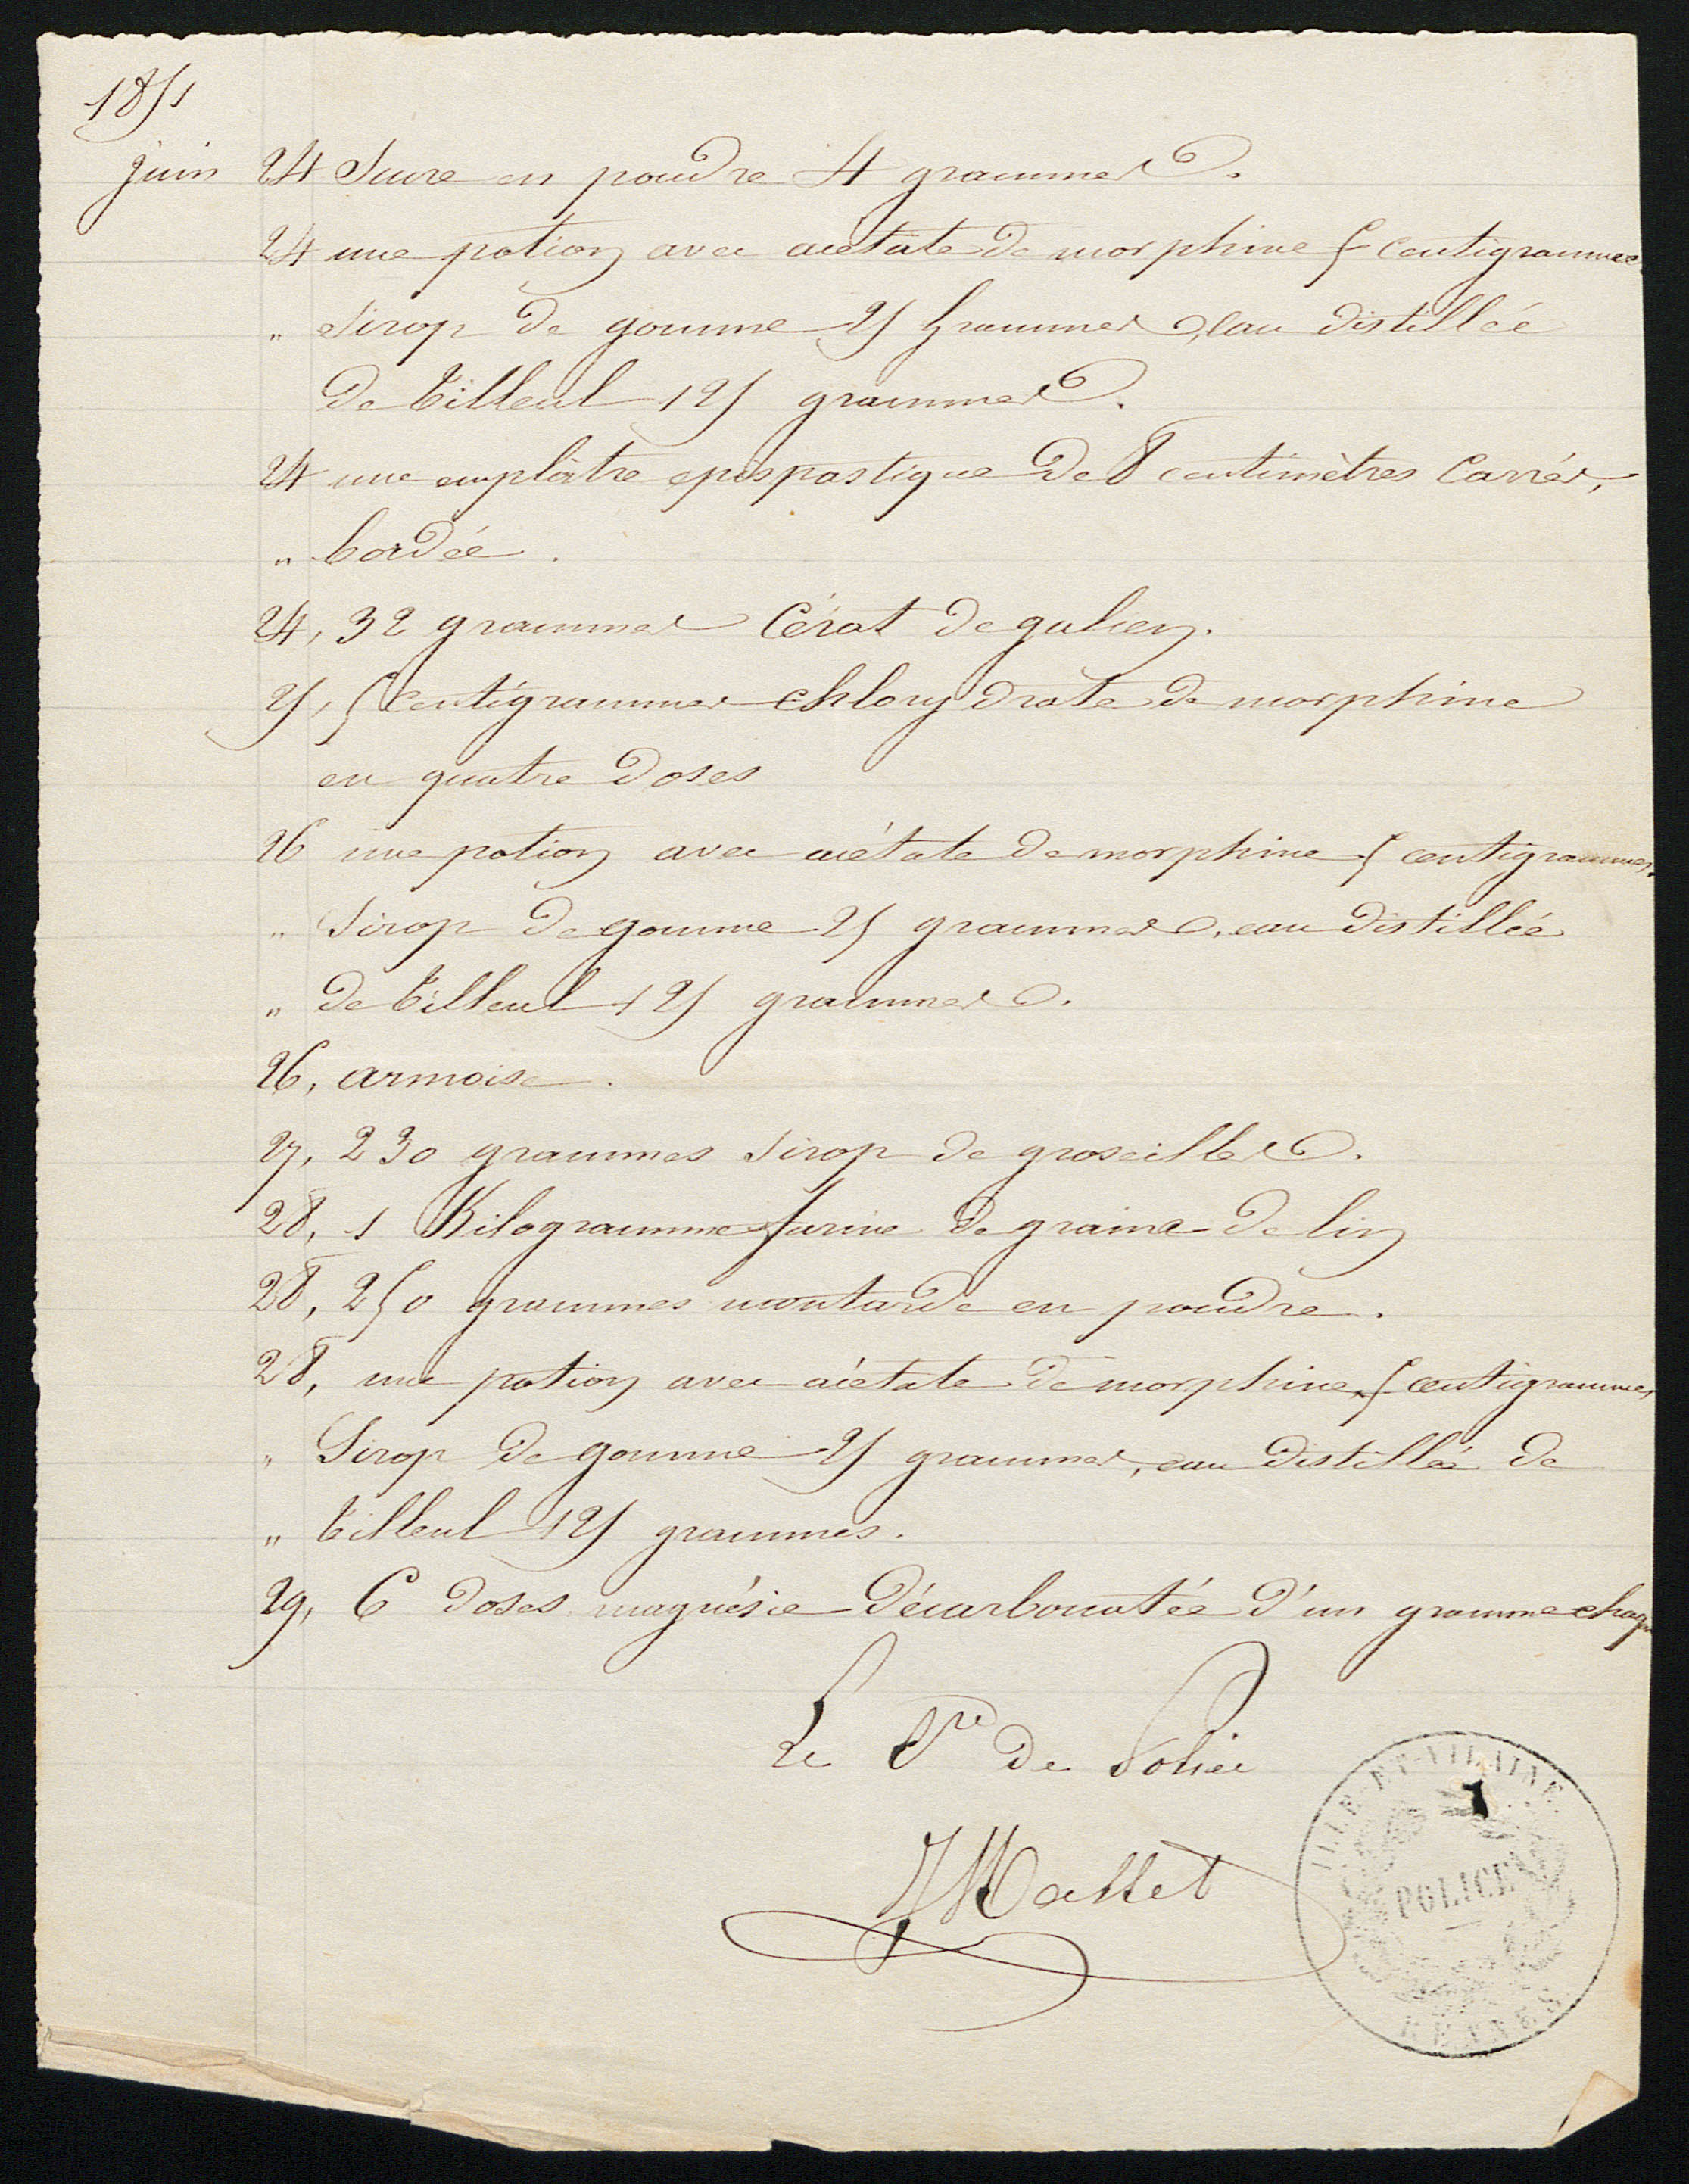 1851
juin 24 Sucre en poudre 4 grammes.
24 une potion avec acétate de morphine 5 centigrammes
" Sirop de gomme 25 grammes, eau distillée
de tilleul 125 grammes.
24 une emplâtre epispastique de 8 centimètres carrés,
" bordée.
24, 32 grammes Cérat de galien.
25, 5 centigrammes chlorydrate de morphine
en quatre doses
26 une potion avec acétate de morphine 5 centigrammes,
" Sirop de gomme 25 grammes, eau distillée
" de tilleul 125 grammes.
26, armoise.
27, 230 grammes Sirop de groseilles.
28, 1 Kilogramme farine de graine de lin
28, 250 grammes moutarde en poudre.
28, une potion avec acétate de morphine, 5 centigrammes,
" Sirop de gomme 25 grammes, eau distillée de
" tilleul 125 grammes.
29, 6 doses magnésie décarbonatée d'un gramme chaque
Le Cre de Police
Mallet
ILLE-ET-VILAINE
POLICE
RENNES